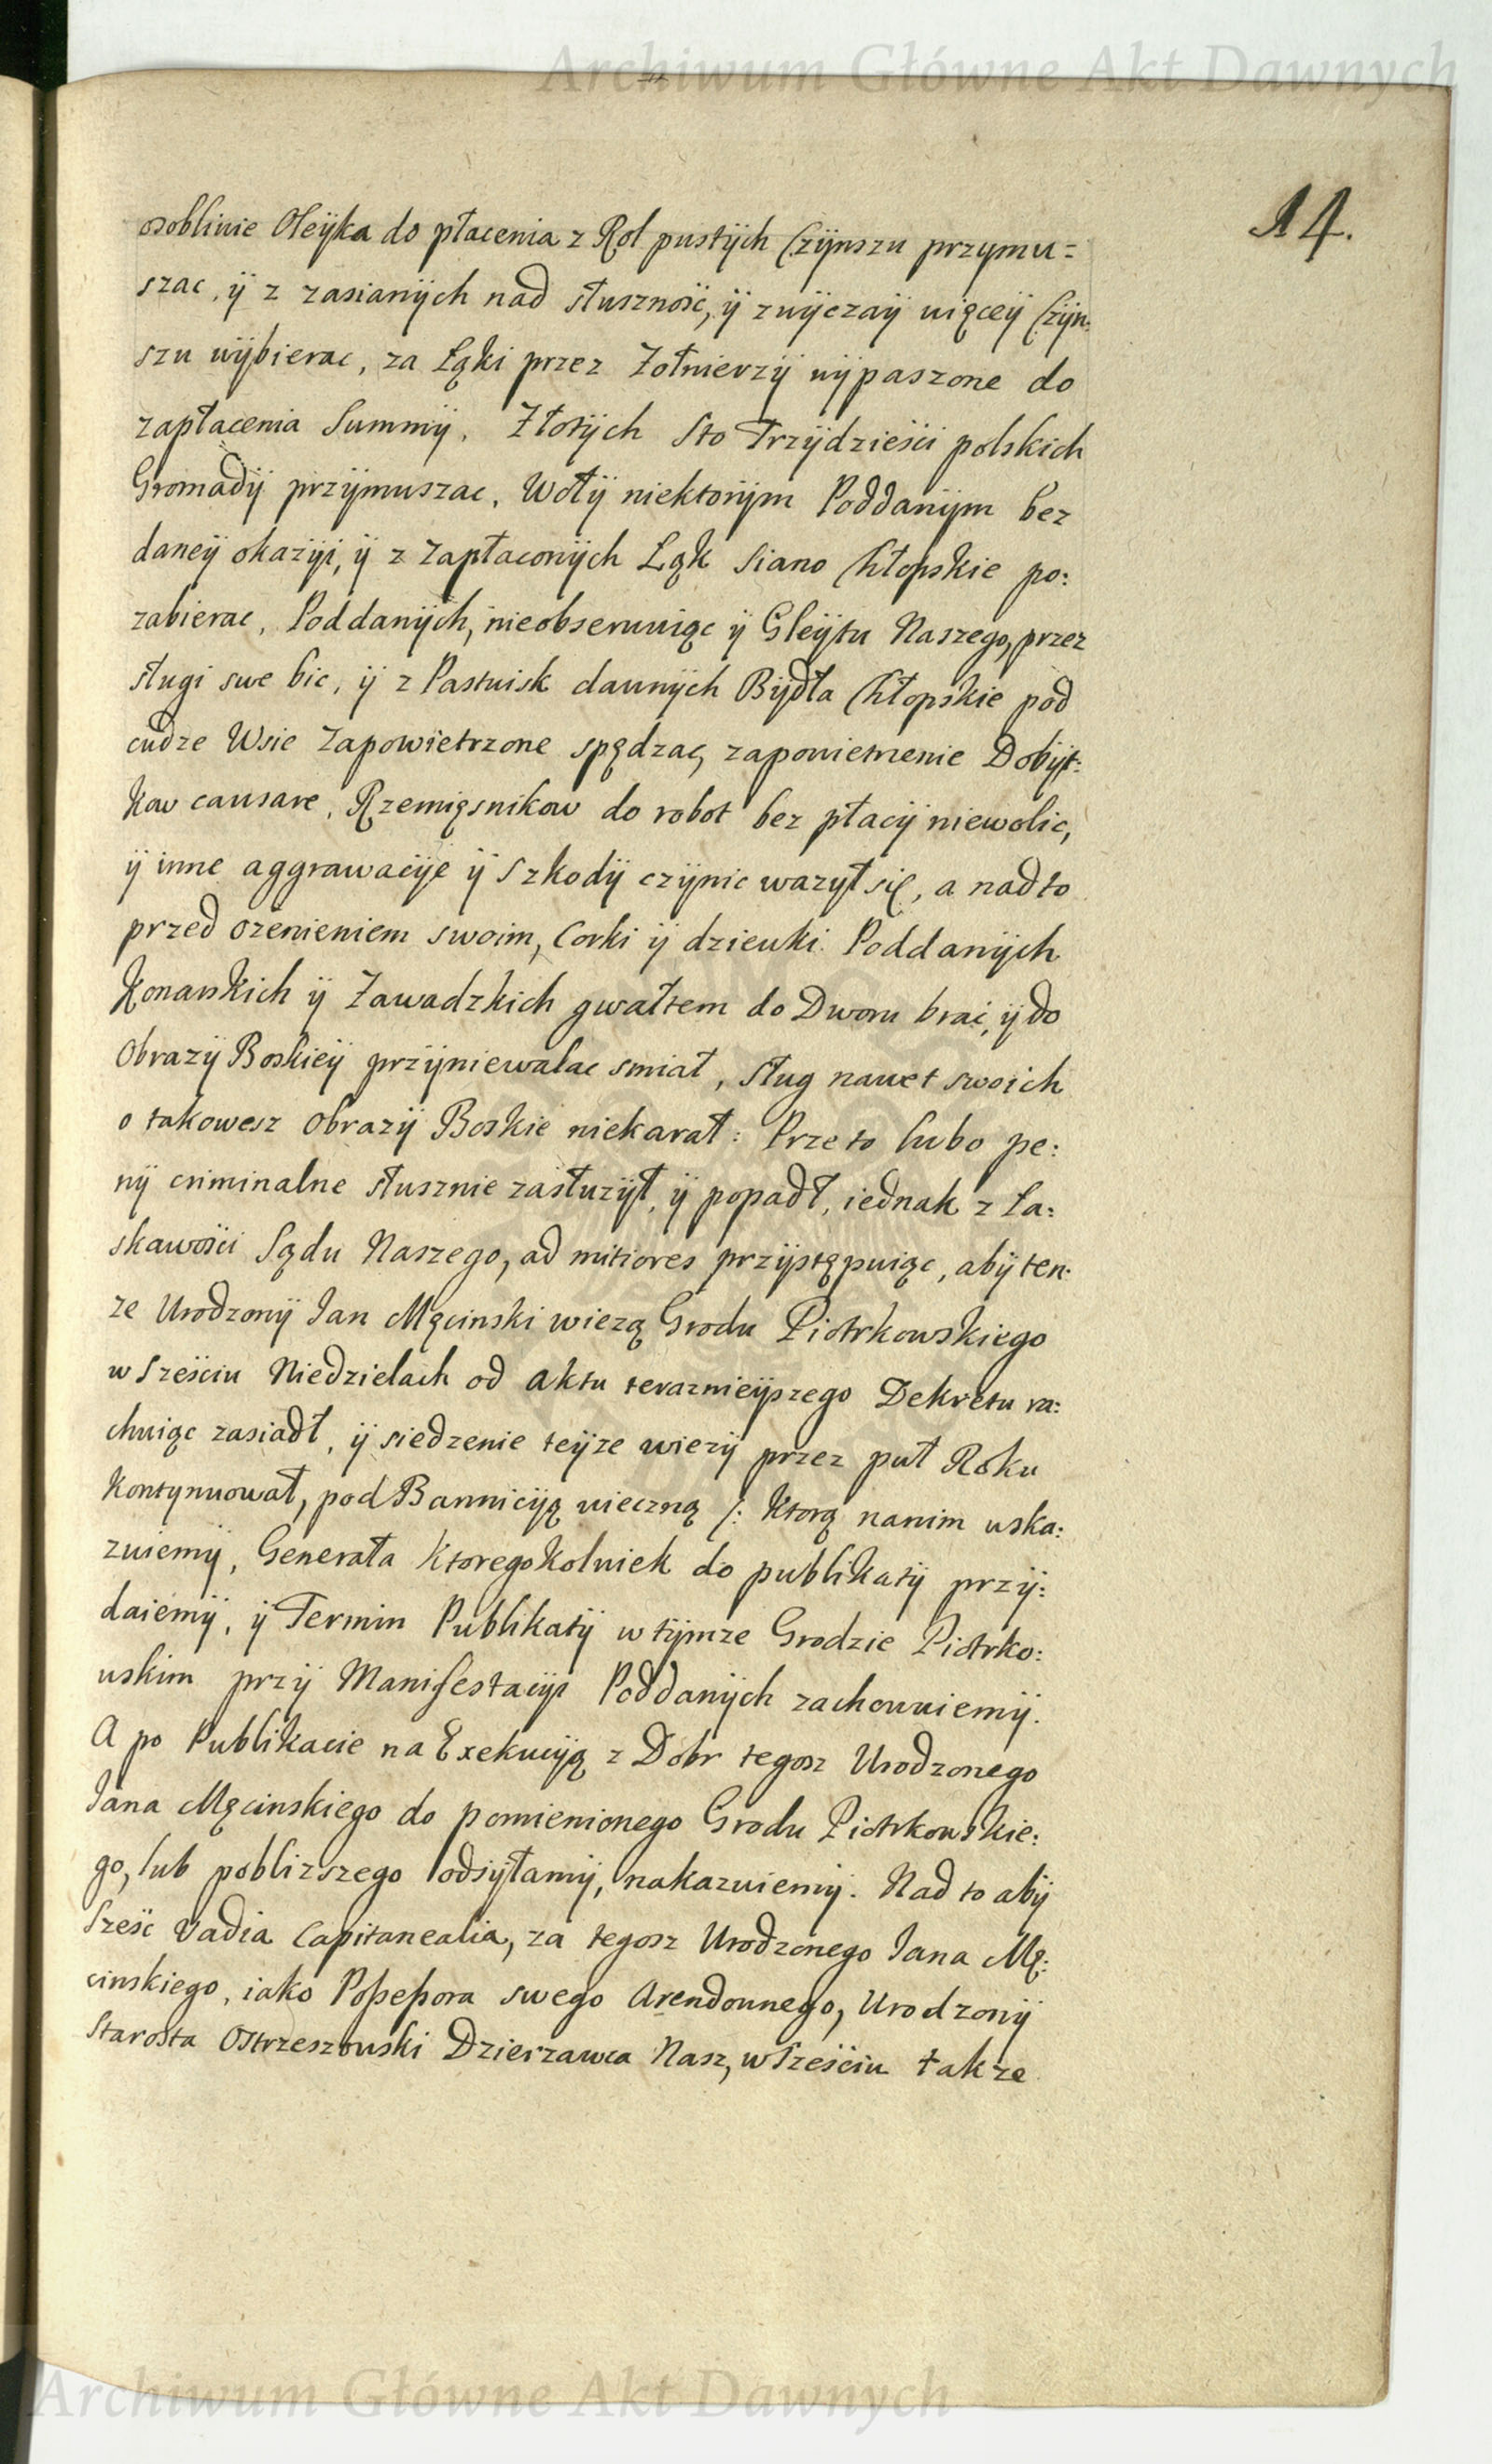 Archiwum Główne Akt Dawnych
14.
osobliwie Oleÿka do płacenia z Rol pustÿch Czÿnszu przymu=
szac, ÿ z zasianÿch nad słuszność, ÿ zwÿczaÿ więceÿ Czÿn:
szu wÿbierac, za Łąki przez Żołnierzÿ wÿpaszone do
zapłacenia Summÿ, Złotÿch Sto Trzÿdzieści polskich
Gromadÿ przÿmuszac, Wołÿ niektorÿm Poddanÿm bez
daneÿ okazÿi, ÿ z Zapłaconÿch Ląk Siano Chłopskie po:
zabierac, Poddanÿch, nieobserwuiąc ÿ Gleÿtu Naszego, przez
sługi swe bic, ÿ z Pastwisk dawnÿch Bÿdła Chłopskie pod
cudze Wsie Zapowietrzone spędzac, zapowietrzenie Dobÿt:
kow causare, Rzemięsnikow do robot bez płacÿ niewolic,
ÿ inne aggrawacÿe ÿ Szkodÿ czÿnic wazył się, a nadto
przed ozenieniem swoim, Corki ÿ dziewki Poddanÿch
Konarskich ÿ Zawadzkich gwałtem do Dworu brać, ÿ do
Obrazÿ Boskieÿ przÿniewalac smiał, sług nawet swoich
o takowesz Obrazÿ Boskie niekarał: Przeto lubo pe:
nÿ criminalne słusznie zasłuzÿł, ÿ popadł, iednak z ła:
skawości Sądu Naszego, ad mitiores przÿstępuiąc, abÿ ten:
ze Urodzonÿ Jan Męcinski wiezą Grodu Piotrkowskiego
w Sześciu Niedzielach od aktu teraznieÿszego Dekretu ra:
chuiąc zasiadł, ÿ siedzenie teÿze wiezÿ przez puł Roku
kontynuował, pod Bannicÿą wieczną /: ktorą nanim wska:
zuiemÿ, Generała ktoregokolwiek do publikatÿ przÿ:
daiemÿ, ÿ Termin Publikatÿ w tÿmze Grodzie Piotrko:
wskim przÿ Manifestacÿi Poddanÿch zachowuiemÿ.
A po Publikacie na Exekucÿą z Dobr tegosz Urodzonego
Jana Męcinskiego do pomienionego Grodu Piotrkowskie:
go, lub poblizszego odsÿłamÿ, nakazuiemÿ. Nad to abÿ
Sześć Vadia Capitanealia, za tegosz Urodzonego Jana Mę:
cinskiego, iako Possessora swego Arendownego, Urodzonÿ
Starosta Ostrzeszowski Dzierzawca Nasz, w Sześciu także
Archiwum Główne Akt Dawnych